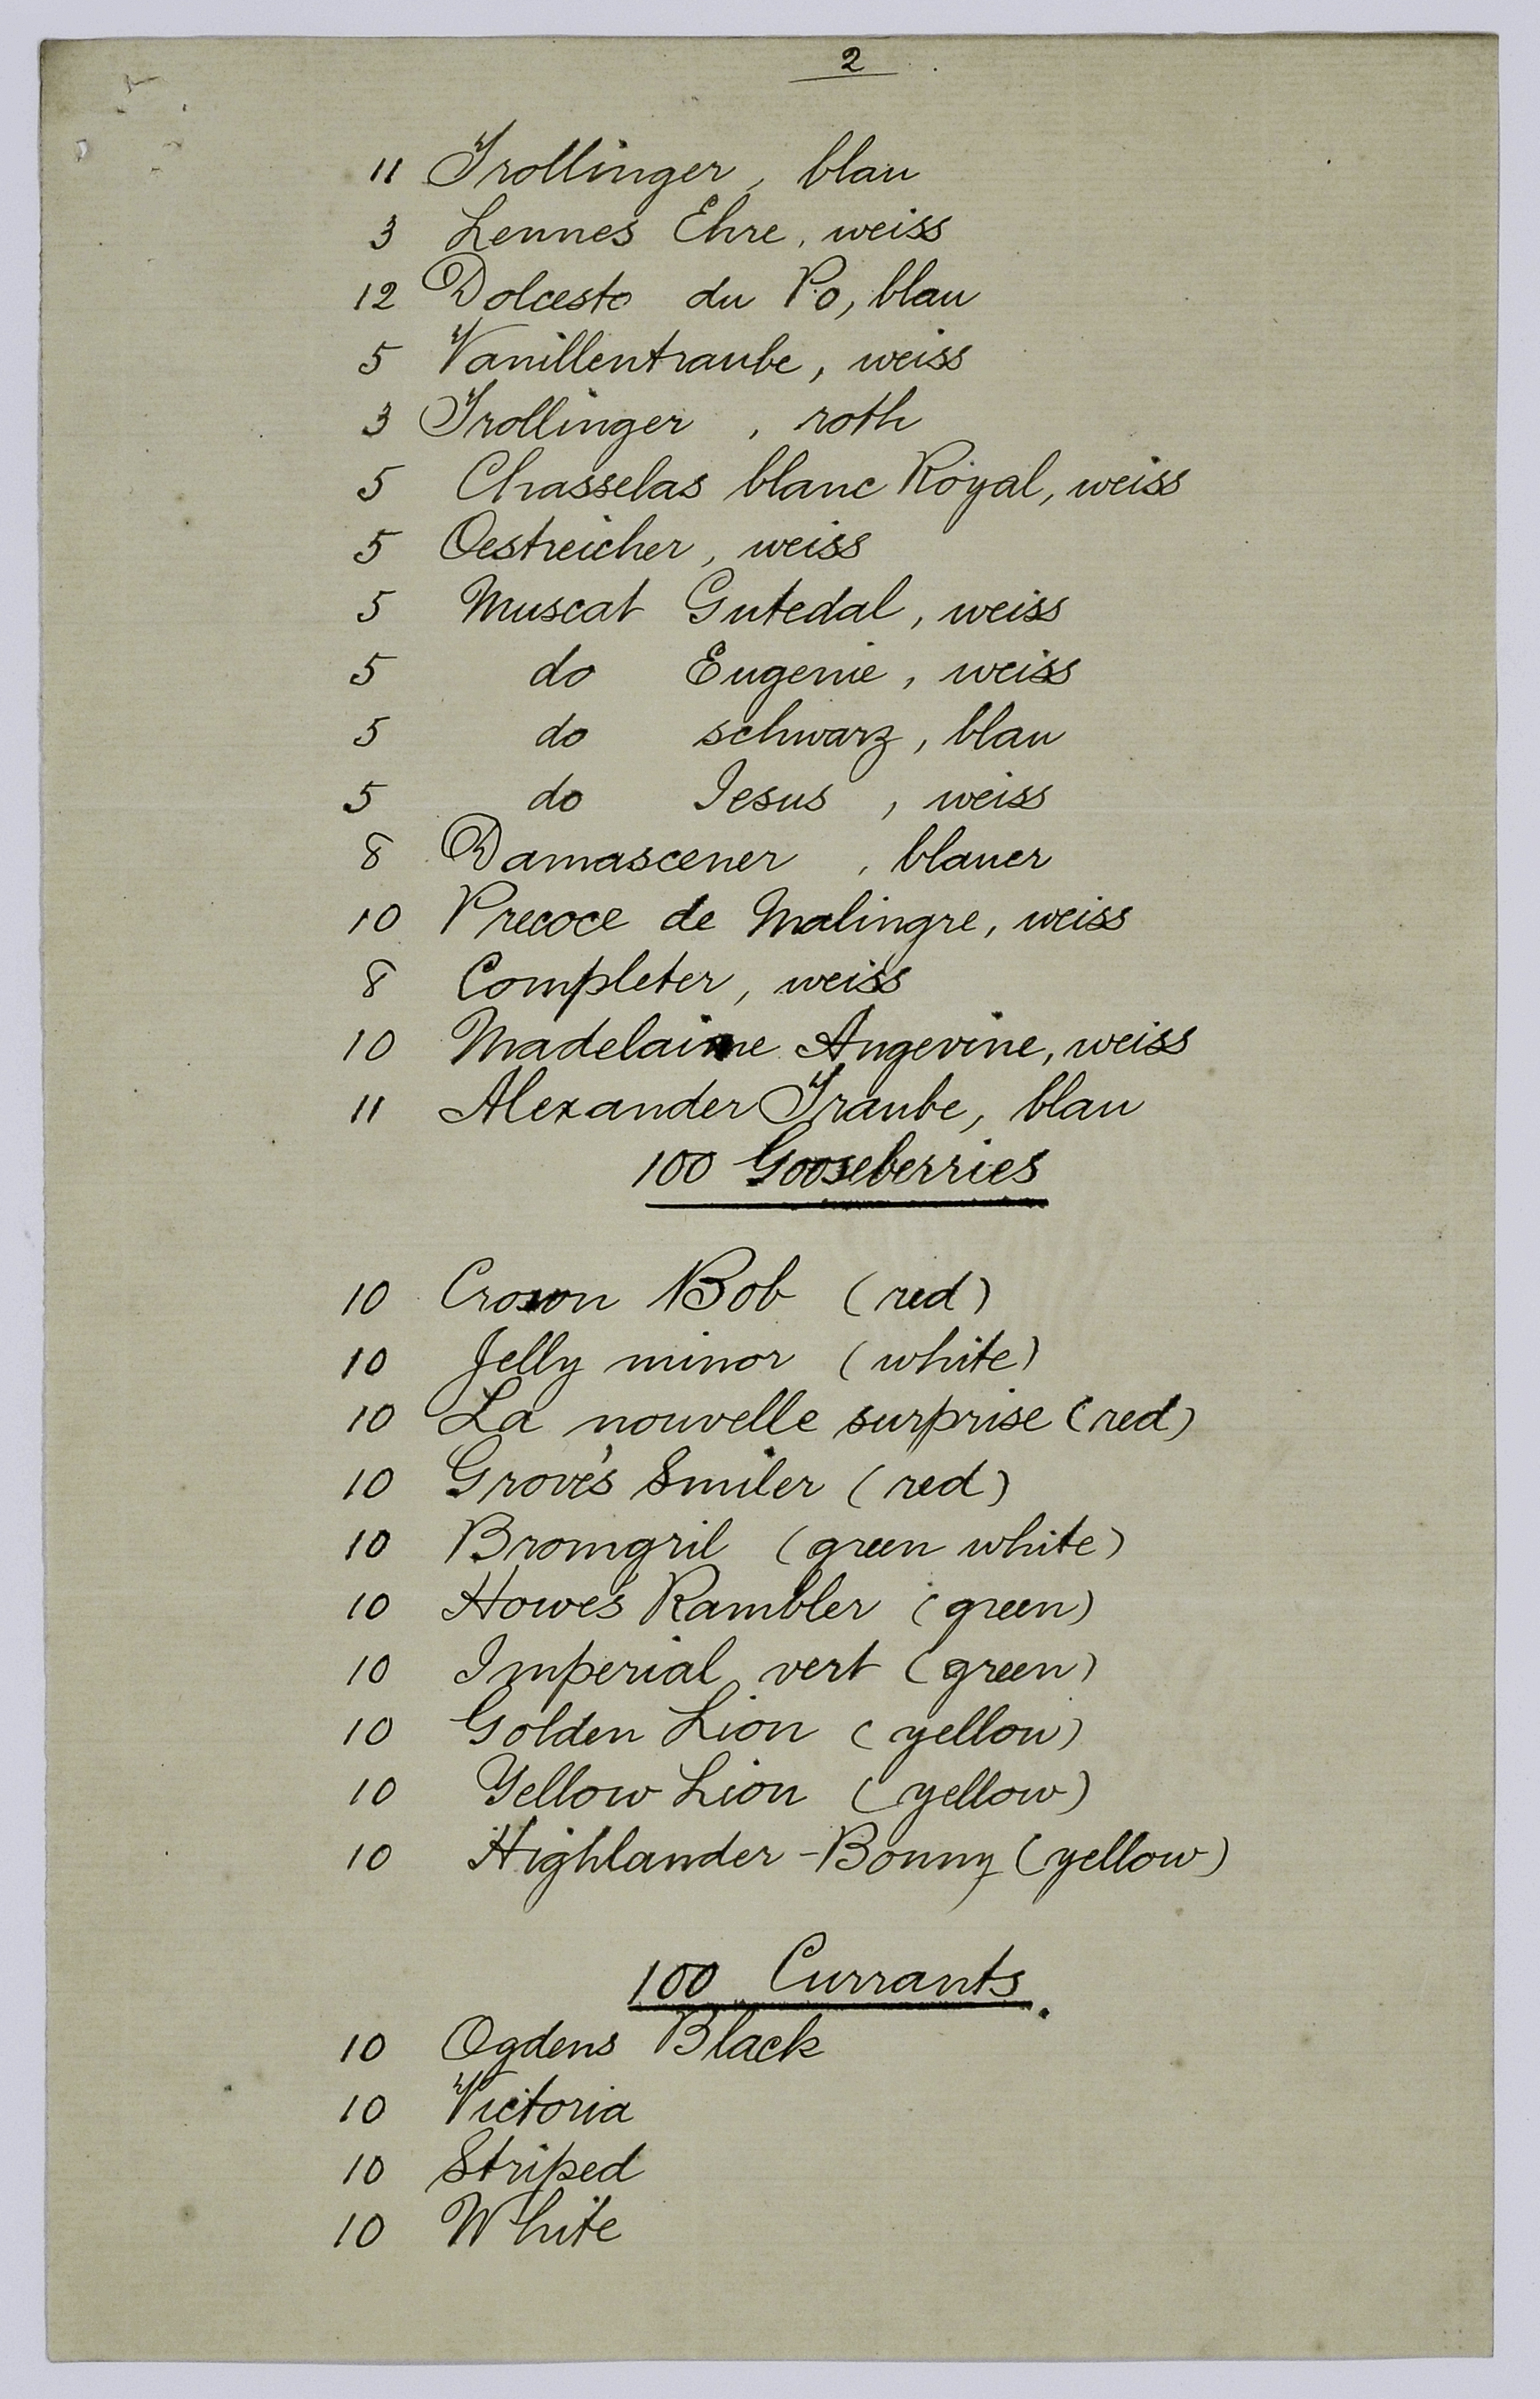 2
11 Trollinger, blau
3 Lennes Ehre, weiss
12 Dolcesto du Po, blau
5 Vanillentraube, weiss
3 Trollinger, roth
5 Chasselas blanc Royal, weiss
5 Oestreicher, weiss
5 Muscat Gutedal, weiss
5 do Eugenie, weiss
5 do schwarz, blau
5 do Jesus, weiss
8 Damascener, blauer
10 Precoce de Malingre, weiss
8 Completer, weiss
10 Madelaine Angevine, weiss
11 Alexander Traube, blau
100 Gooseberries
10 Crown Bob (red)
10 Jelly minor (white)
10 La nouvelle surprise (red)
10 Grove's Smiler (red)
10 Bromgril (green white)
10 Howe's Rambler (green)
10 Imperial vert (green)
10 Golden Lion (yellow)
10 Yellow Lion (yellow)
10 Highlander-Bonny (yellow)
100 Currants.
10 Ogdens Black
10 Victoria
10 Striped
10 White